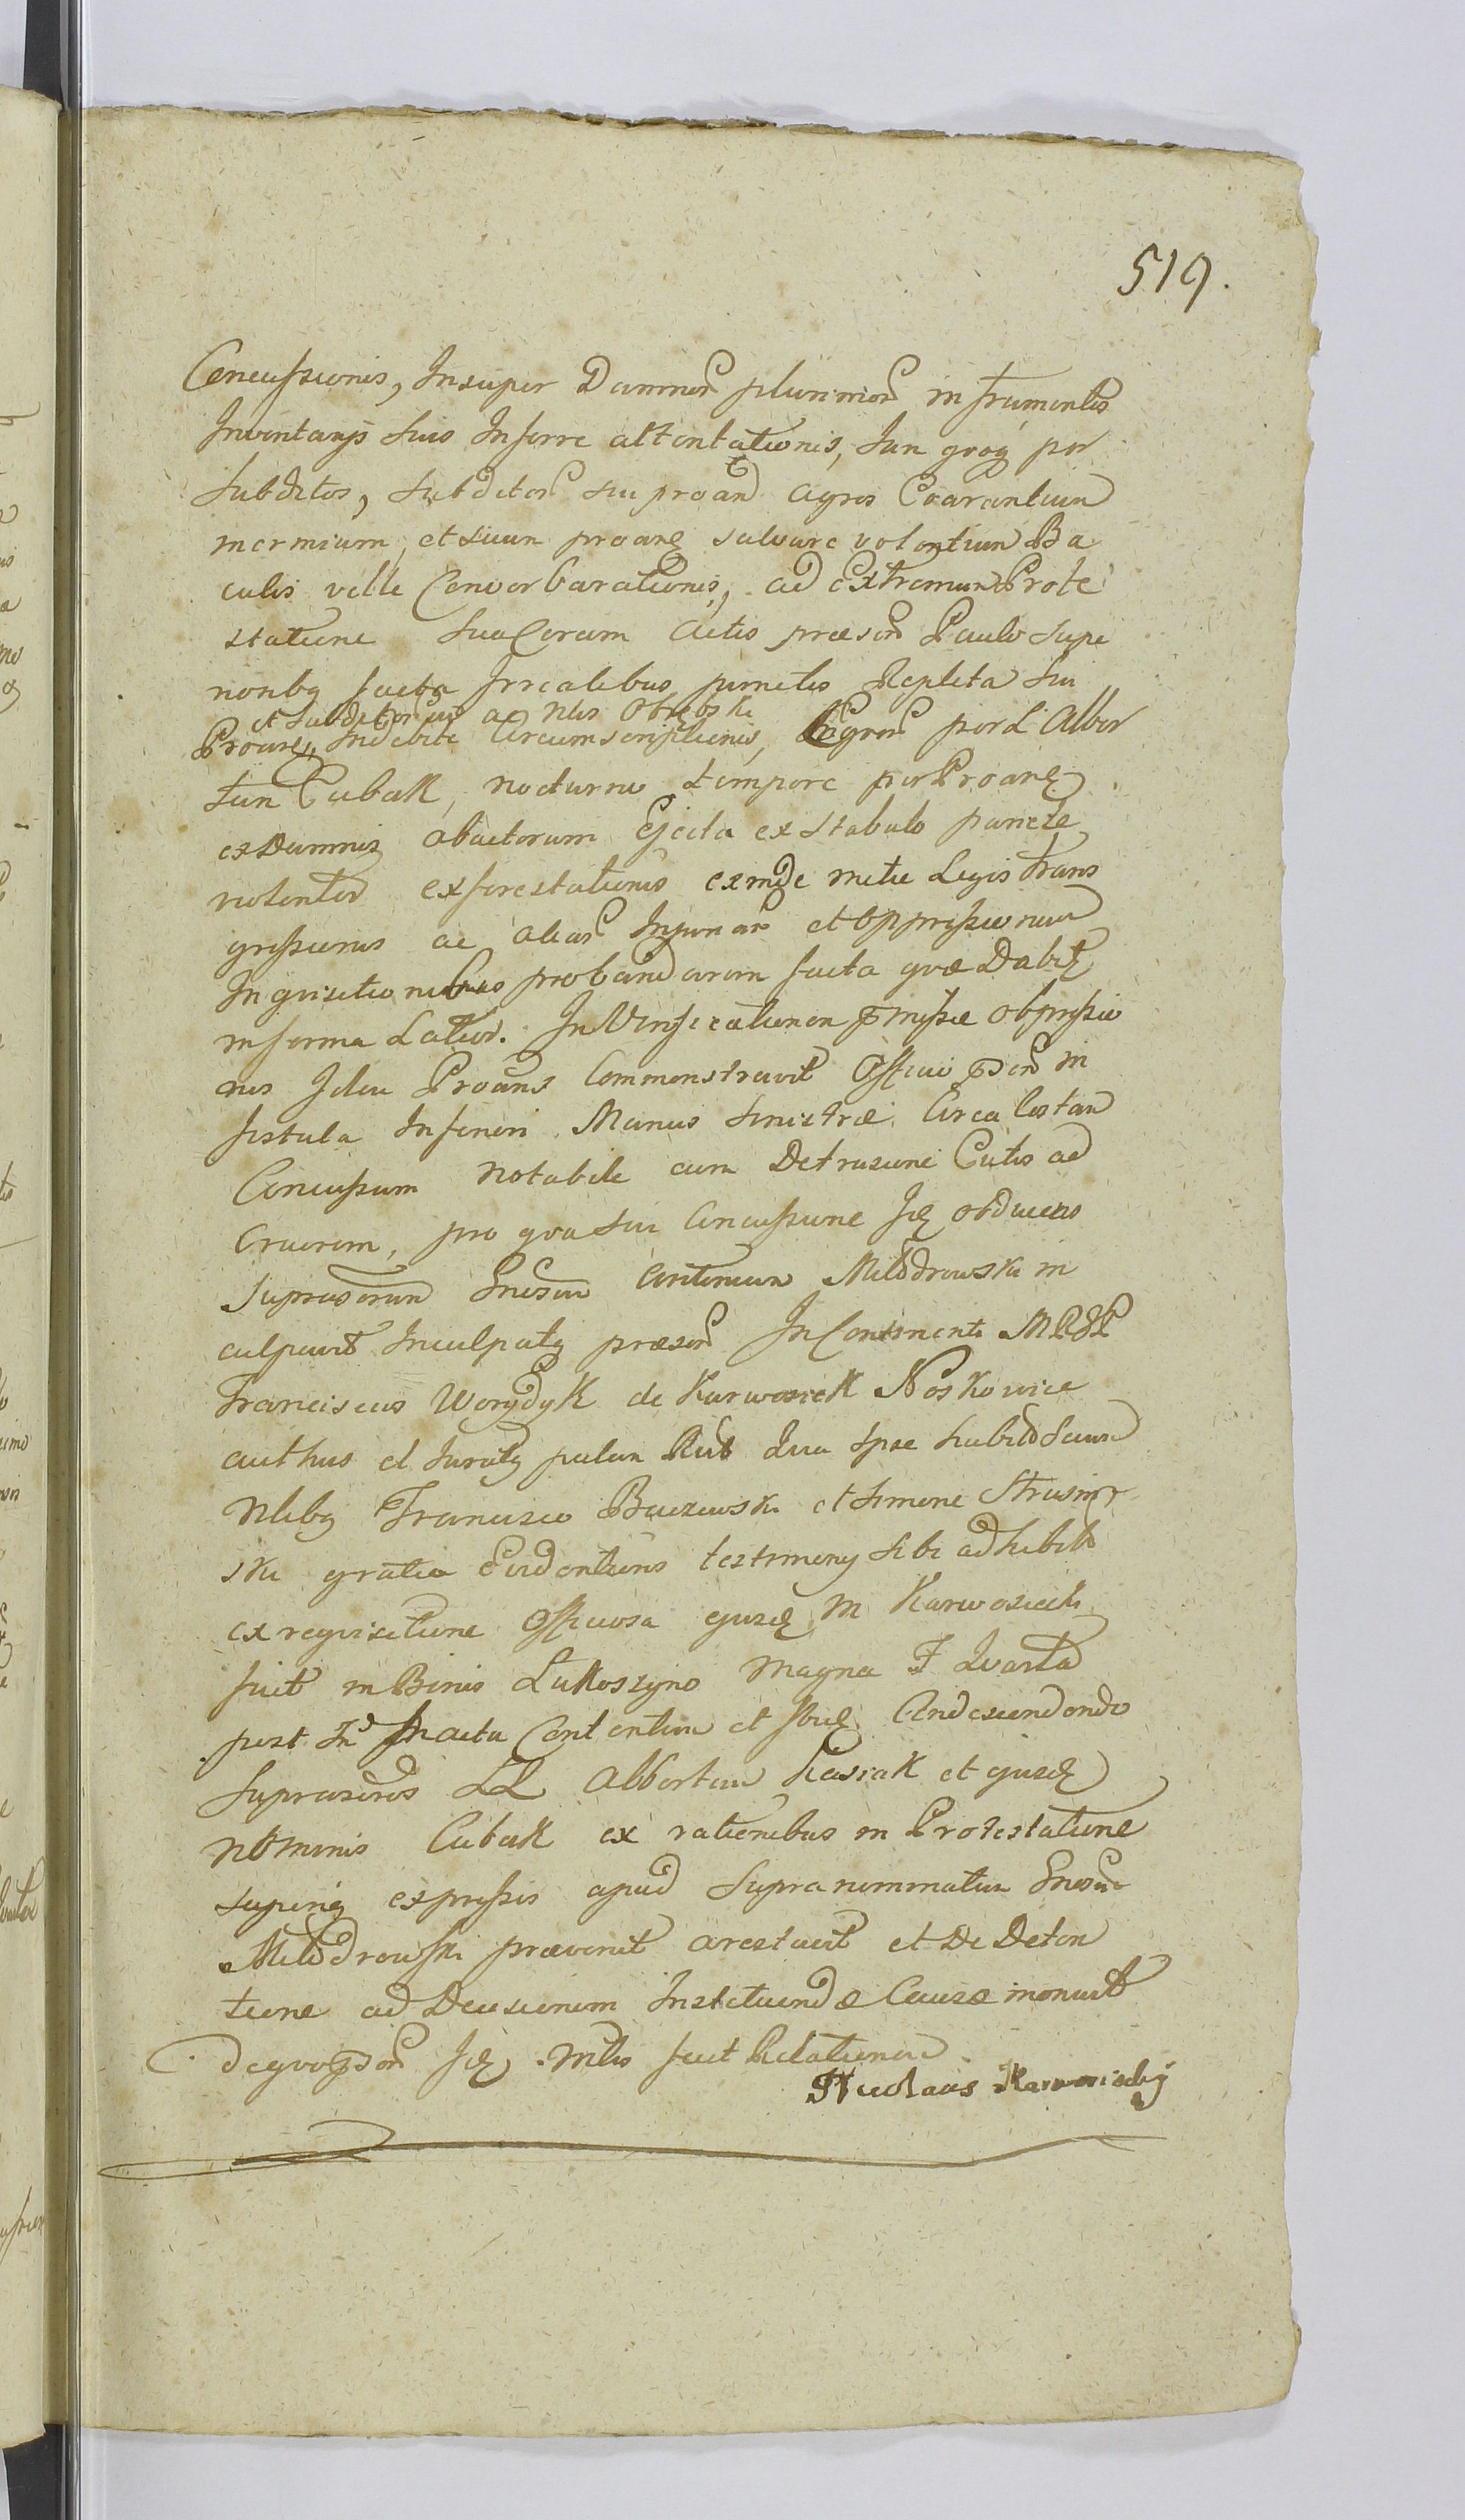 519.
Concussionis, Insuper Damnor plurimor in frumentis
Inventarÿs suis Inferre attentationis, tum per
Subditos, subditor sui proãn agros Coarantium
inermium, et suum proanq salvare volentium Ba
culis velle Converberationis, ad extremum Prote
statione sua Coram Actis præsen Paulo supe
rioribq facta Irrealibus punctis Repleta sui
et Subditor sui ac Nlis Obrębski
Proanq, Indebite Circumscriptionis, Eqror per L Alber
tum Cubak, nocturno tempore per Proanq
ex Damnis abactorum Ejecta ex stabulo pariete
violenter exforestationis exinde metu Legis Trans
gressionis ac aliar Injuriar et oppressionum
Inquisitionibus probandarum facta quæ Dabitq
in forma Latior. In Verificationem præmissæ obpressio
nis Idem Proans Commonstravit Officio psen in
fistula Inferiori Manus sinistræ Circa Costam
Concussum notabile cum Detrusione Cutis ad
Cruorem, pro qua sui Concussione Idq obducens
suprascrum Gnosum Antonium Milodrowski in
culpavit Inculpatq præsen In Continenti MRSP
Franciscus Worydyk de Karwosieki Noskowice
authus et Juratq palam Rub Qua ipse habito secum
Nlibq Francisco Baczewski et Simone Strusin
ski gratia Evidentioris testimonÿ sibi adhibito
ex requisitione Officiosa ejusdq M Karwosiecki
fuit in Bonis Lukoszyno Magna F Quarta
post In Præactu Contentum et ibiq Condescendendo
suprascros LL Albertum Kasiak et ejusdq
nominis Cubak ex rationibus in Protestatione
superiq expressis apud supranominatum Gnosum
Milodrowski prævenit arestavit et De Deten
tione ad Decisionem Instituendæ Causæ monuit
de quo psen Idq Mlis fecit Relationem
Nicolaus Karwosiecky